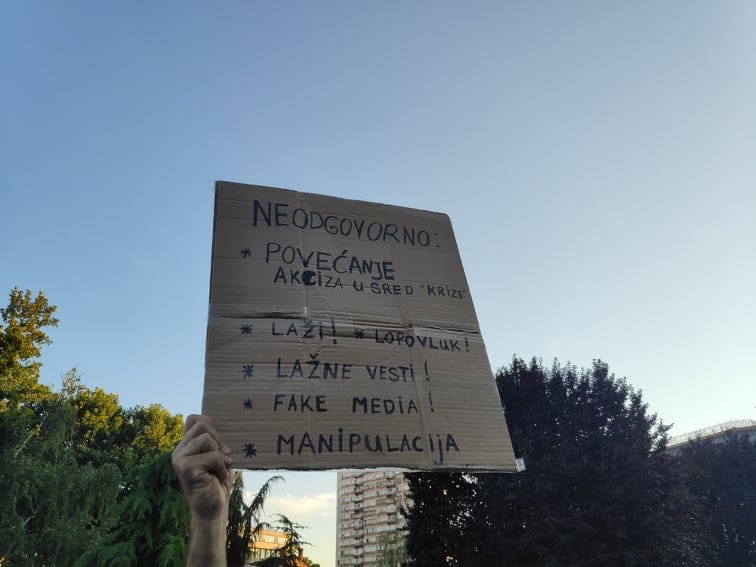 NEODGOVORNO:
* POVEĆANJE
AKCIZA U SRED "KRIZE"
* LAŽI! * LOPOVLUK!
* LAŽNE VESTI!
* FAKE MEDIA!
* MANIPULACIJA